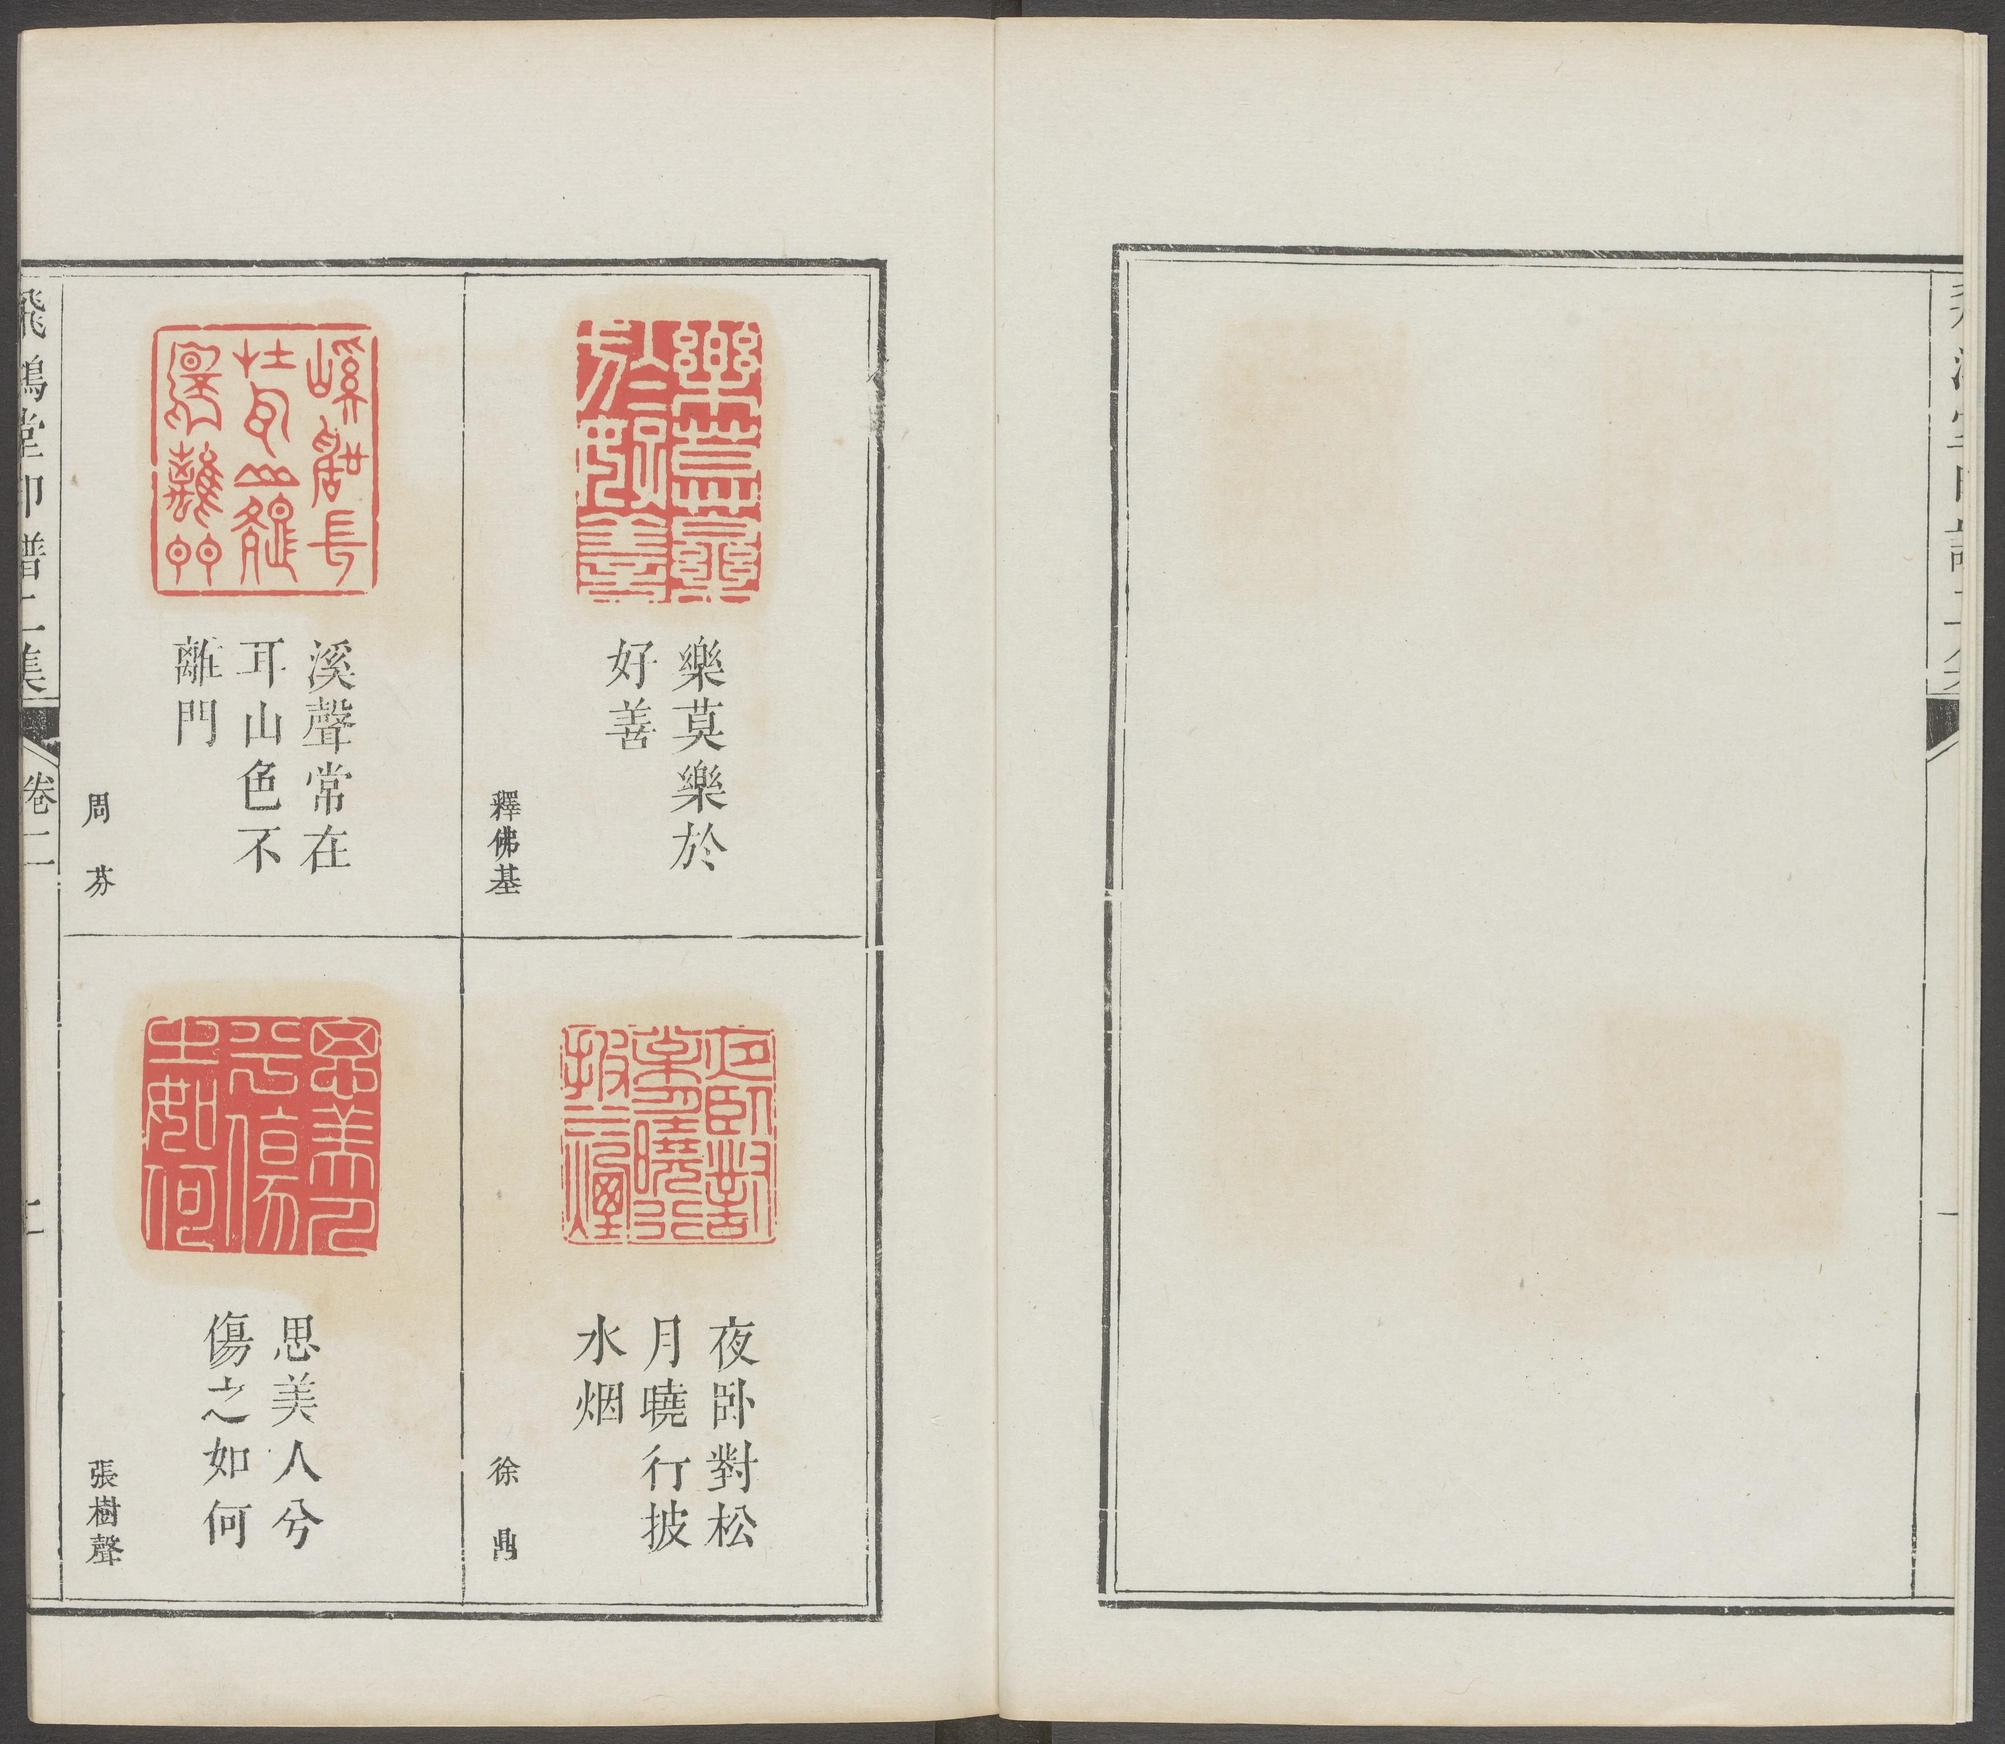 樂莫樂於
好善
釋佛基
夜卧對松
月曉行披
水烟
徐鼎
溪聲常在
耳山色不
離門
周芬
思美人兮
傷之如何
張樹聲
飛鴻堂印譜二集
卷二